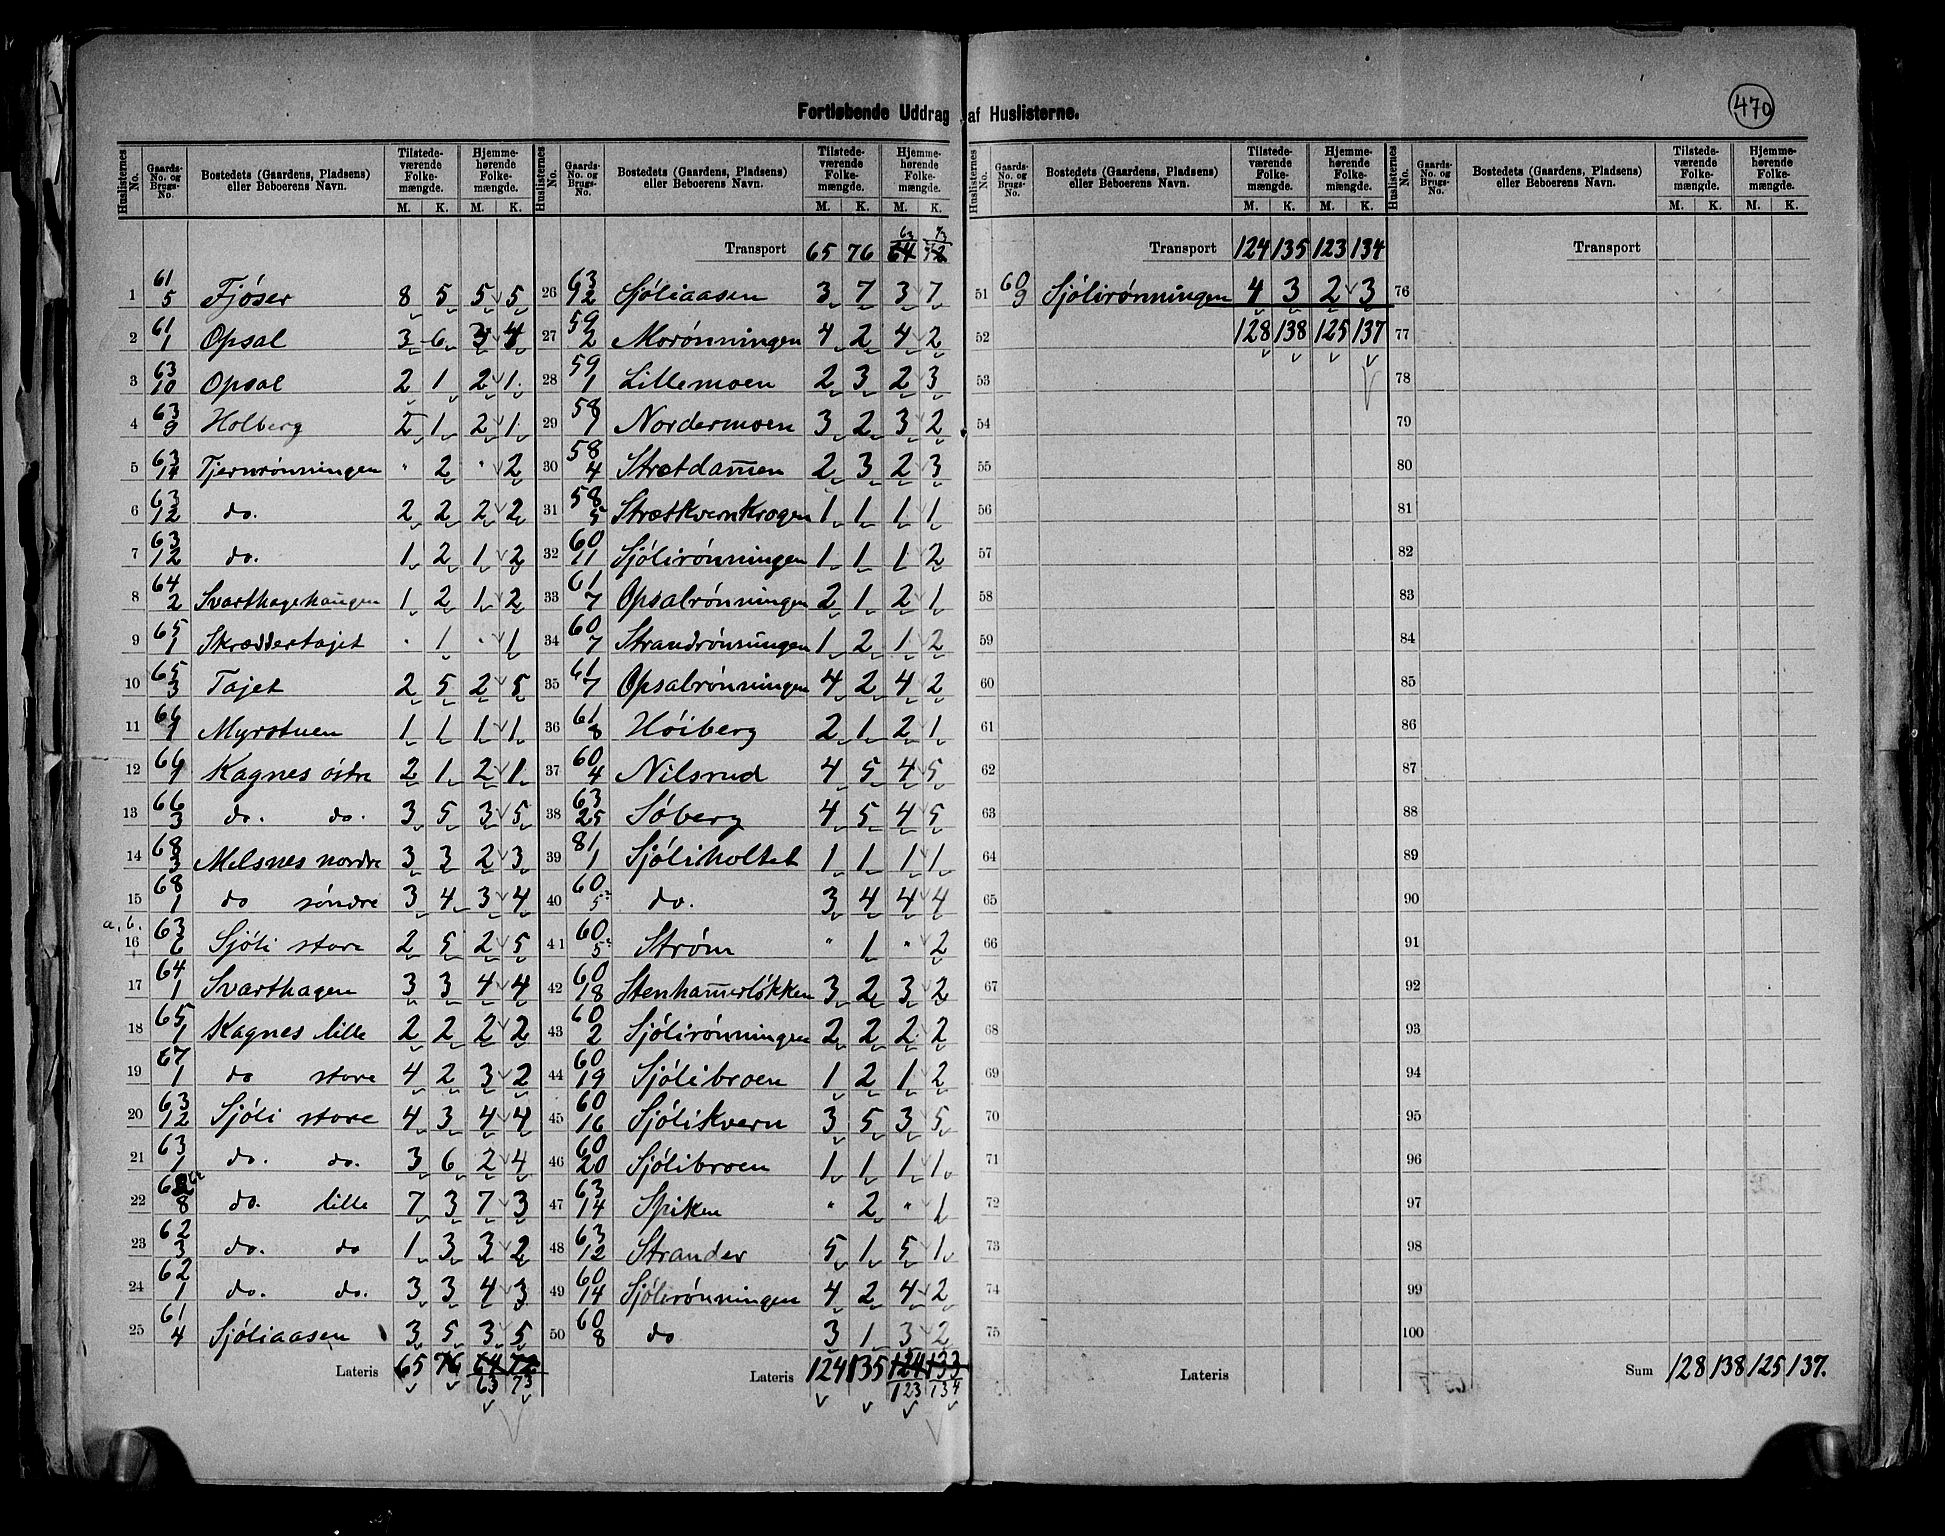 470
Fortløbende Uddrag af Huslisterne.
Huslisternes No. | Gaards-No. og Brugs-No. | Bostedets (Gaardens, Pladsens) eller Beboerens Navn. | Tilstedeværende Folkemængde. M. K. | Hjemmehørende Folkemængde. M. K.
1 61/5 Fjøser 8 5 5 5
2 61/1 Opsal 3 6 3 4
3 63/10 Opsal 2 1 2 1
4 63/9 Holberg 2 1 2 1
5 63/14 Tjernrønningen " 2 " 2
6 63/12 do. 2 2 2 2
7 63/12 do. 1 2 1 2
8 64/2 Svarthagehaugen 1 2 1 2
9 65/1 Skræddertajet " 1 " 1
10 65/3 Tajet 2 5 2 5
11 66/1 Myrstuen 1 1 1 1
12 66/1 Kagnes østre 2 1 2 1
13 66/3 do. do. 3 5 3 5
14 68/3 Melsnes nordre 3 3 2 3
15 68/1 do søndre 3 4 3 4
a, b.
16 63/6 Sjöli store 2 5 2 5
17 64/1 Svarthagen 3 3 4 4
18 65/1 Kagnes lille 2 2 2 2
19 67/1 do store 4 2 3 2
20 63/12 Sjöli store 4 3 4 4
21 63/1 do. do. 3 6 2 4
22 62/8 do. lille 7 3 7 3
23 62/3 do. do 1 3 3 2
24 62/1 do. do. 3 3 4 3
25 61/4 Sjöliaasen 3 5 3 5
Lateris 65 76 64 72
63 73
Huslisternes No. | Gaards-No. og Brugs-No. | Bostedets (Gaardens, Pladsens) eller Beboerens Navn. | Tilstedeværende Folkemængde. M. K. | Hjemmehørende Folkemængde. M. K.
63 73
Transport 65 76 64 72
26 63/12 Sjöliaasen 3 7 3 7
27 59/2 Morønningen 4 2 4 2
28 59/1 Lillemoen 2 3 2 3
29 58/1 Nordermoen 3 2 3 2
30 58/4 Strætdam̅en 2 3 2 3
31 58/5 Strætkvernkrogen 1 1 1 1
32 60/11 Sjölirønningen 1 1 1 2
33 61/7 Opsalrønningen 2 1 2 1
34 60/7 Strandrønningen 1 2 1 2
35 61/7 Opsalrønningen 4 2 4 2
36 61/8 Høiberg 2 1 2 1
37 60/4 Nilsrud 4 5 4 5
38 63/25 Søberg 4 5 4 5
39 81/1 Sjöliholtet 1 1 1 1
40 60/5² do. 3 4 4 4
41 60/5² Strøm " 1 " 2
42 60/18 Stenham̅erløkken 3 2 3 2
43 60/2 Sjölirønningen 2 2 2 2
44 60/19 Sjölibroen 1 2 1 2
45 60/16 Sjölikvern 3 5 3 5
46 60/20 Sjölibroen 1 1 1 1
47 63/14 Spiken " 2 " 1
48 63/12 Strander 5 1 5 1
49 60/14 Sjölirønningen 4 2 4 2
50 60/8 do 3 1 3 2
Lateris 124 135 124 133
123 134
Huslisternes No. | Gaards-No. og Brugs-No. | Bostedets (Gaardens, Pladsens) eller Beboerens Navn. | Tilstedeværende Folkemængde. M. K. | Hjemmehørende Folkemængde. M. K.
Transport 124 135 123 134
51 60/9 Sjölirønningen 4 3 2 3
52 128 138 125 137
53
54
55
56
57
58
59
60
61
62
63
64
65
66
67
68
69
70
71
72
73
74
75
Lateris
Huslisternes No. | Gaards-No. og Brugs-No. | Bostedets (Gaardens, Pladsens) eller Beboerens Navn. | Tilstedeværende Folkemængde. M. K. | Hjemmehørende Folkemængde. M. K.
Transport
76
77
78
79
80
81
82
83
84
85
86
87
88
89
90
91
92
93
94
95
96
97
98
99
100
Sum 128 138 125 137.